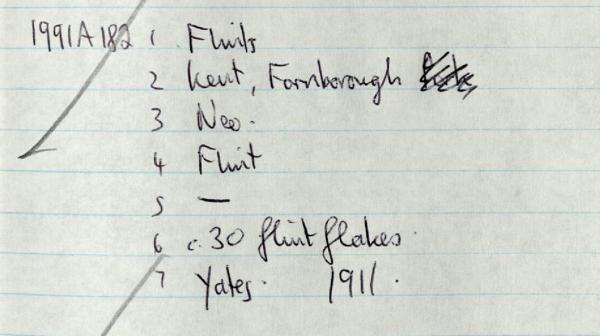 1991A182 1 Flints
2 Kent, Farnborough
3 Neo.
4 Flint
5 —
6 c. 30 flint flakes.
7 Yates. 1911.